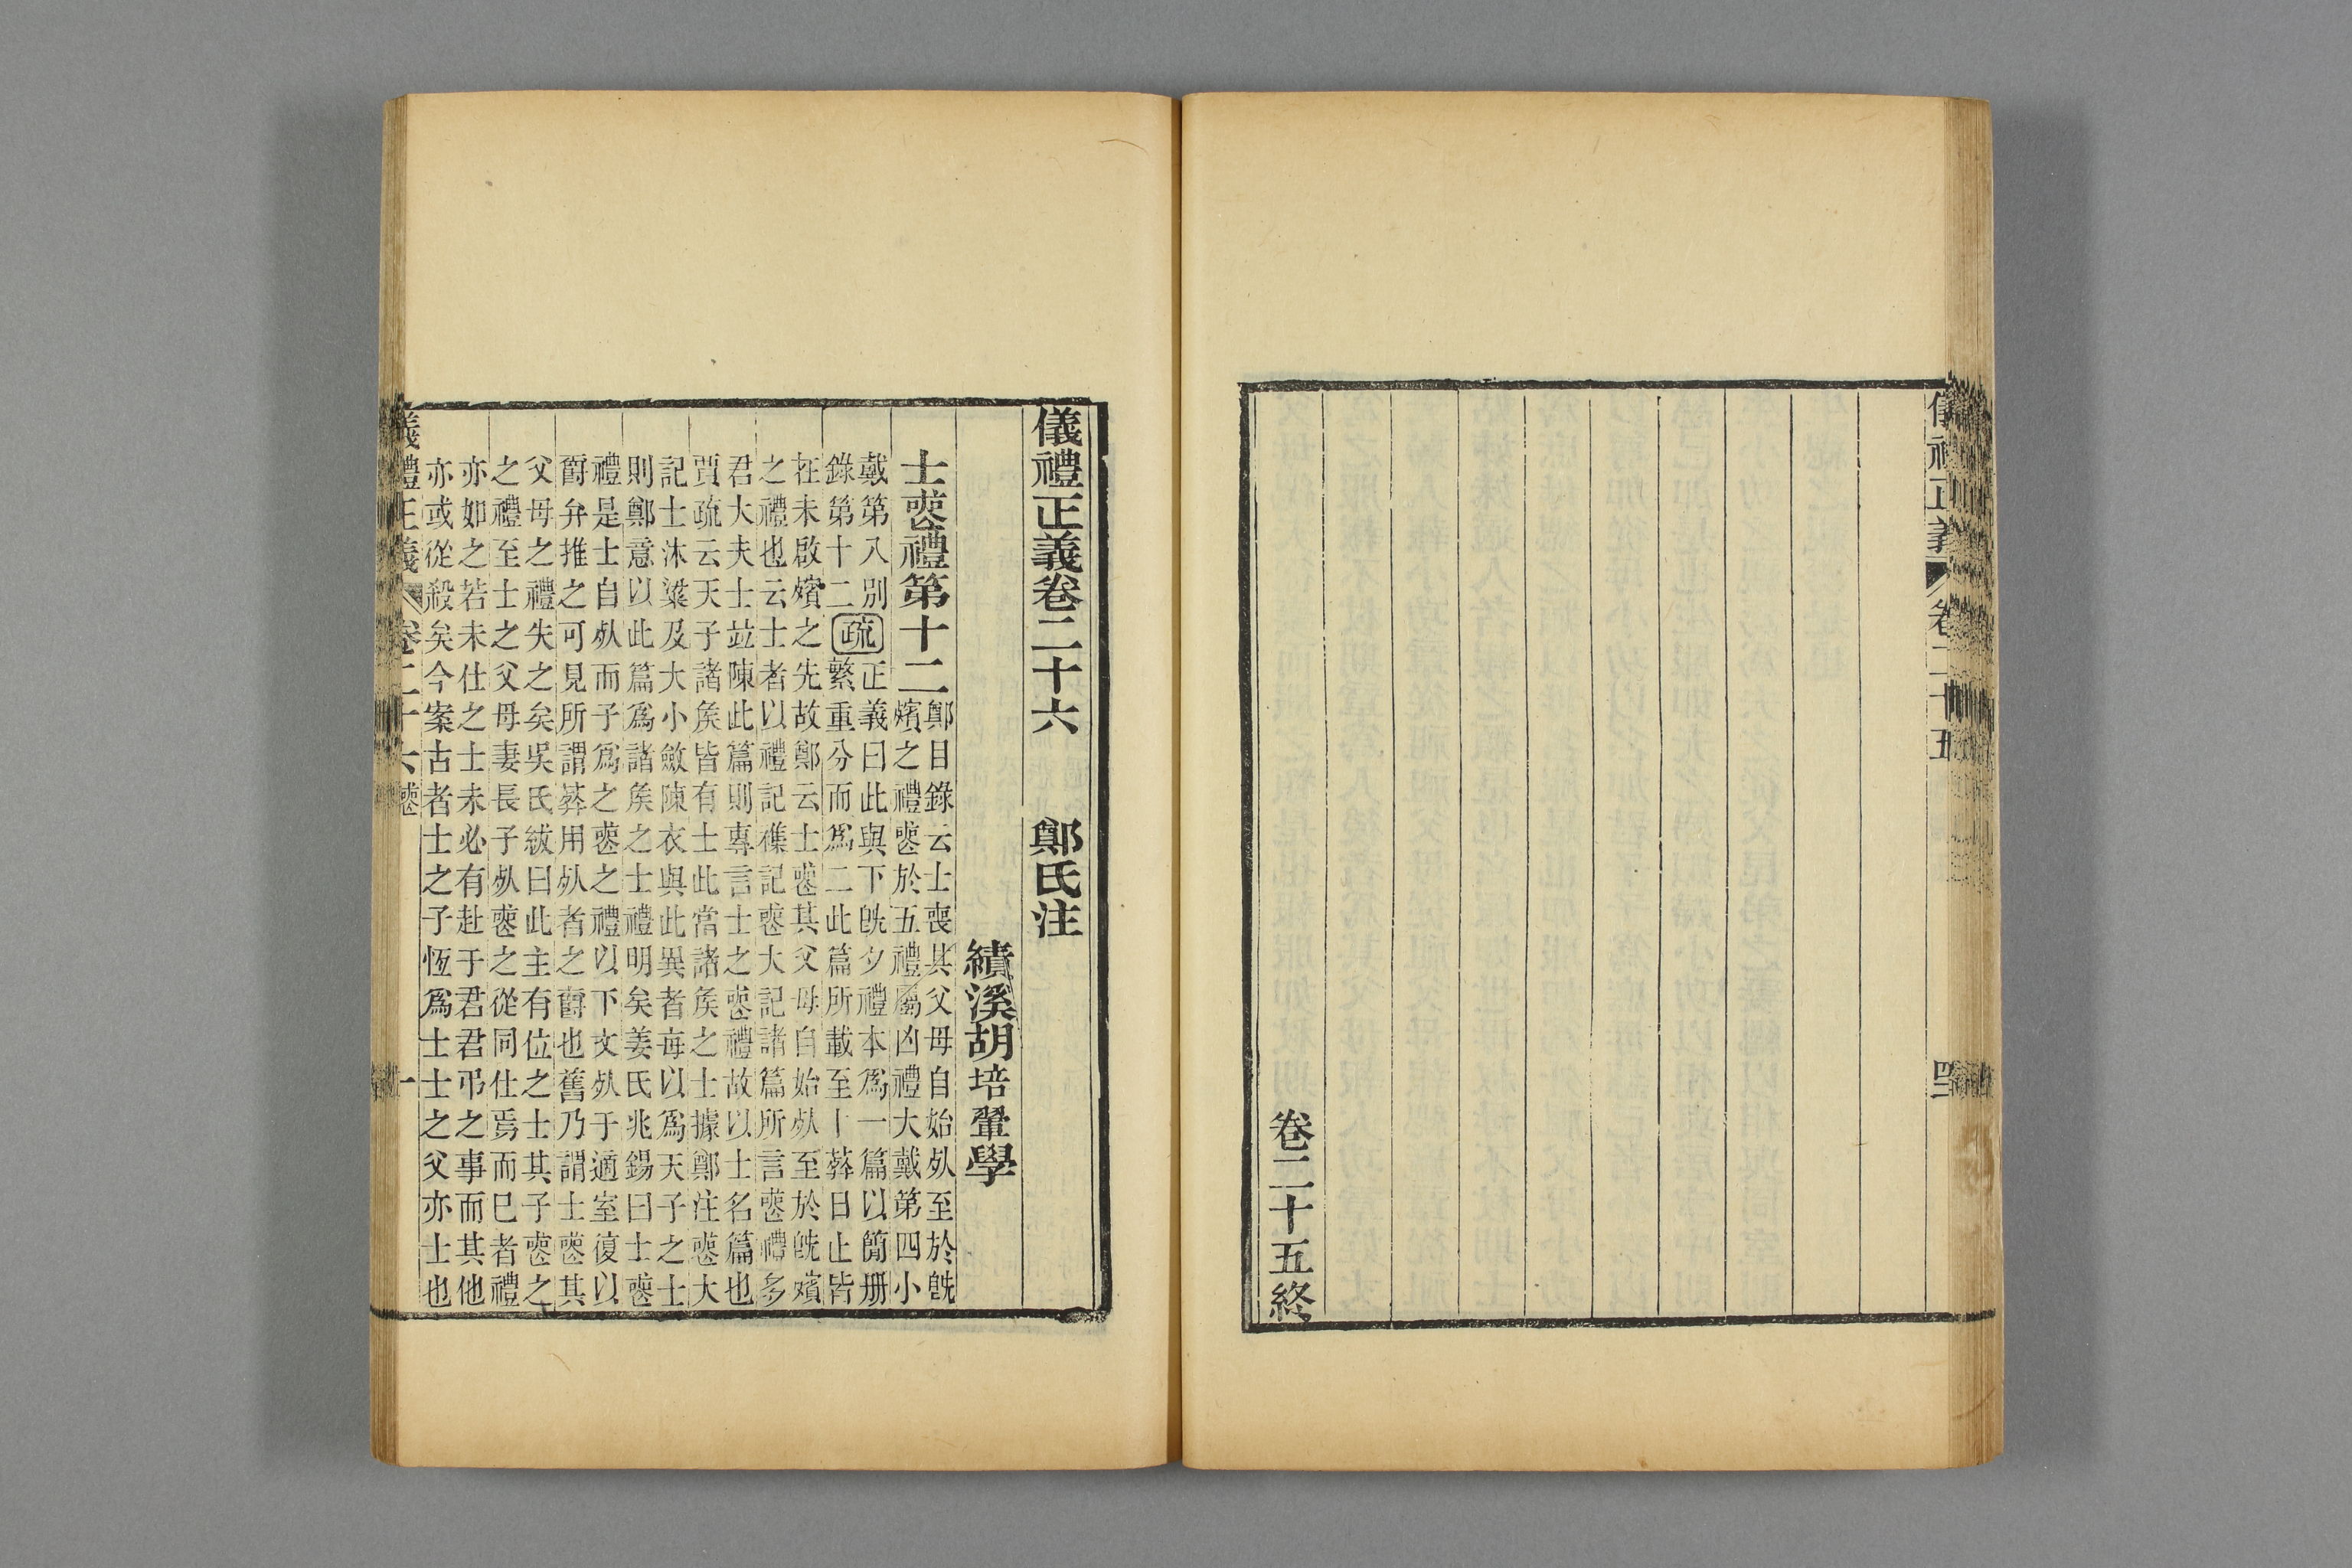 儀禮正義 卷二十五
卷二十五終
儀禮正義卷二十六 鄭氏注
績溪胡培翬學
士喪禮第十二
鄭目錄云士喪其父母自始死至於旣
殯之禮喪於五禮屬凶禮大戴第四小
戴第八別
錄第十二
疏
正義曰此與下旣夕禮本爲一篇以簡册
繁重分而爲二此篇所載至卜葬日止皆
在未啟殯之先故鄭云士喪其父母自始死至於旣殯
之禮也云士者以禮記襍記喪大記諸篇所言喪禮多
君大夫士竝陳此篇則專言士之喪禮故以士名篇也
賈疏云天子諸矦皆有士此當諸矦之士據鄭注喪大
記士沐粱及大小斂陳衣與此異者每以爲天子之士
則鄭意以此篇爲諸矦之士禮明矣姜氏兆錫曰士喪
禮是士自死而子爲之喪之禮以下文死于適室復以
爵弁推之可見所謂葬用死者之爵也舊乃謂士喪其
父母之禮失之矣吳氏紱曰此主有位之士其子喪之
之禮至士之父母妻長子死喪之從同仕焉而巳者禮
亦如之若未仕之士未必有赴于君君弔之事而其他
亦或從殺矣今案古者士之子恆爲士士之父亦士也
儀禮正義 卷二十六 喪 一